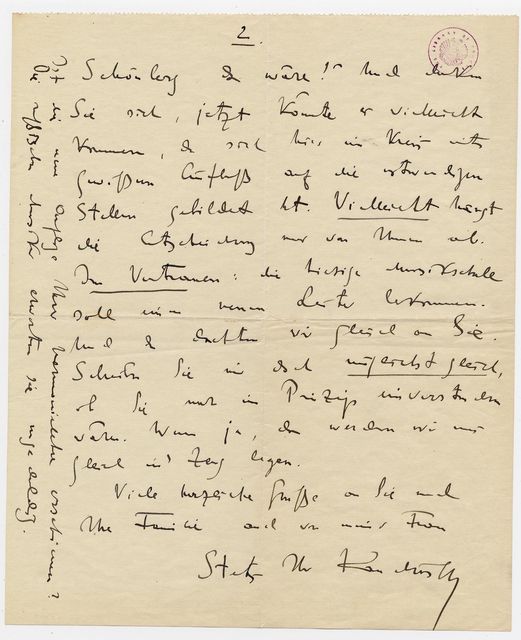 2.
Schönberg da wäre!" Und denken
Sie sich, jetzt könnte er vielleicht
kommen, da sich hier ein Kreis mit
gewissem Einfluß auf die notwendigen
Stellen gebildet hat. Vielleicht hängt
die Entscheidung nur von Ihnen ab.
Im Vertrauen: die hiesige Musikschule
soll einen neuen Leiter bekommen.
Und da dachten wir gleich an Sie.
Schreiben Sie mir doch möglichst gleich,
ob Sie nur im Prinzip einverstanden
wären. Wenn ja, dann werden wir uns
gleich ins Zeug legen.
Viele herzliche Grüße an Sie und
Ihre Familie auch von meiner Frau
Stets Ihr Kandinsky
Ist die neue Auflage Ihrer Harmonielehre erschienen?
Die russischen Musiker erwarten sie ungeduldig.